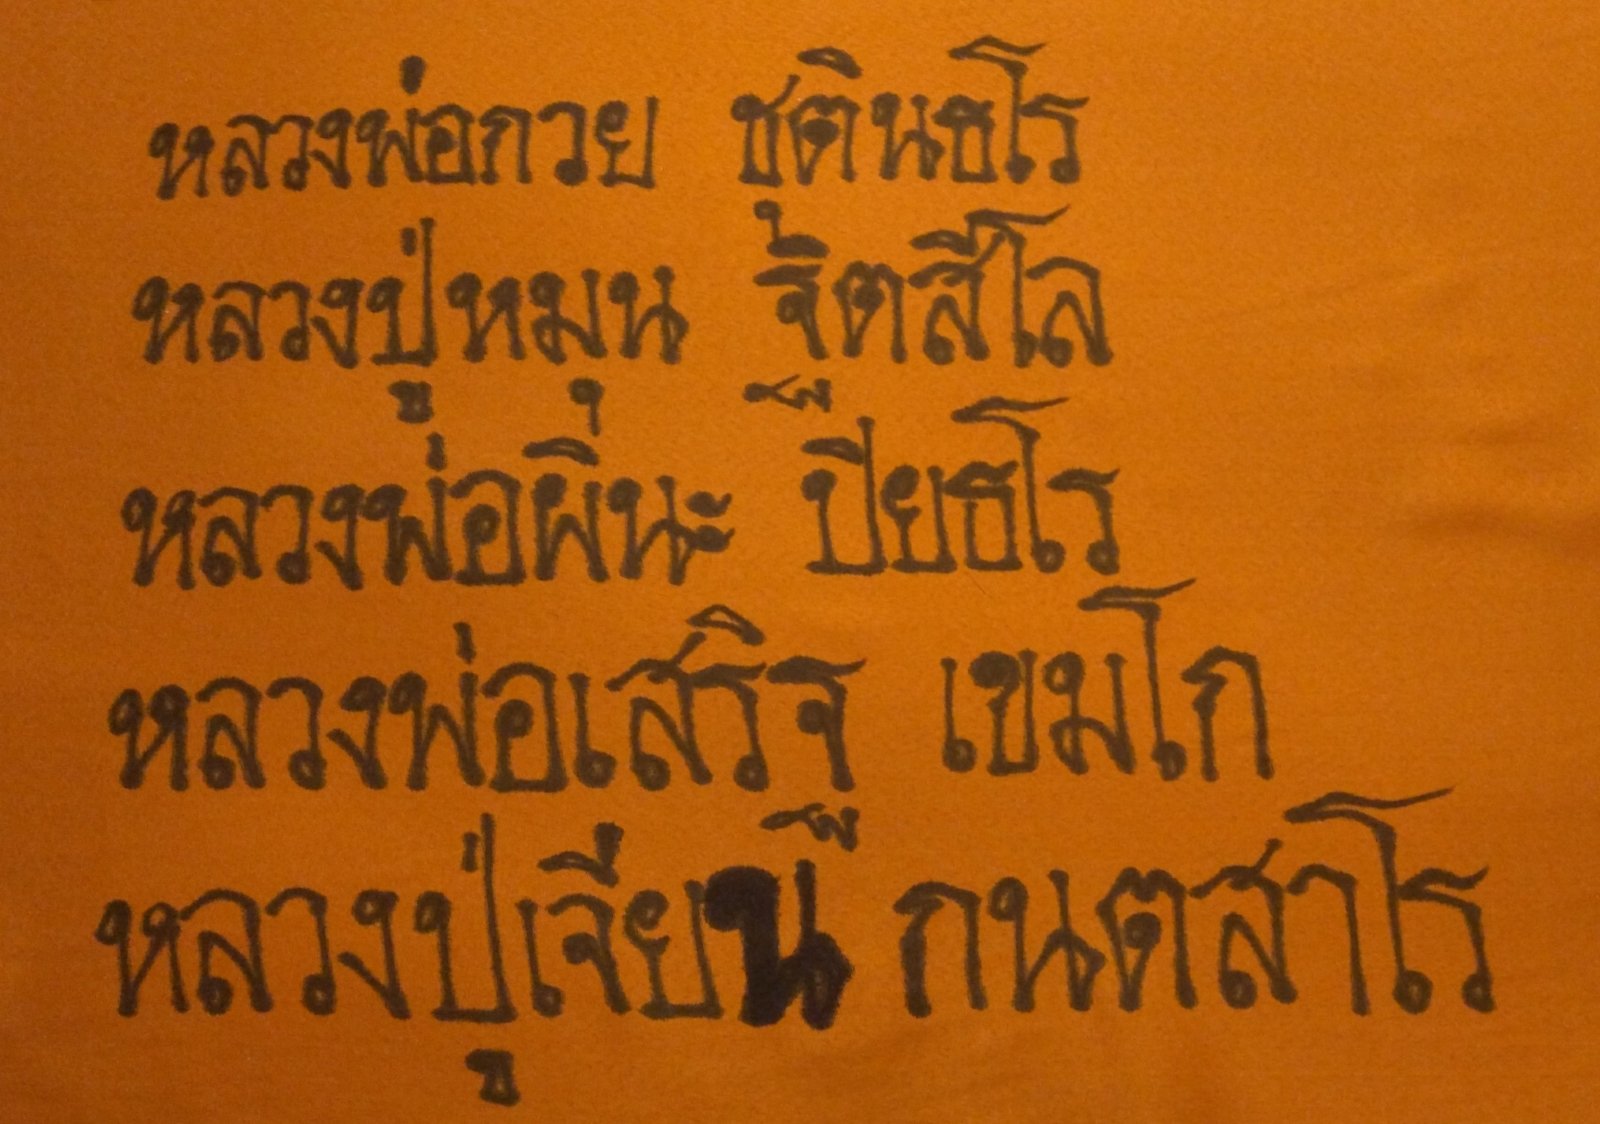 หลวงพ่อกวย ชุตินธโร
หลวงปู่หมุน ฐิตสีโล
หลวงพ่อผินะ ปิยธโร
หลวงพ่อเสริฐ เขมโก
หลวงปู่เจือน กนตสาโร